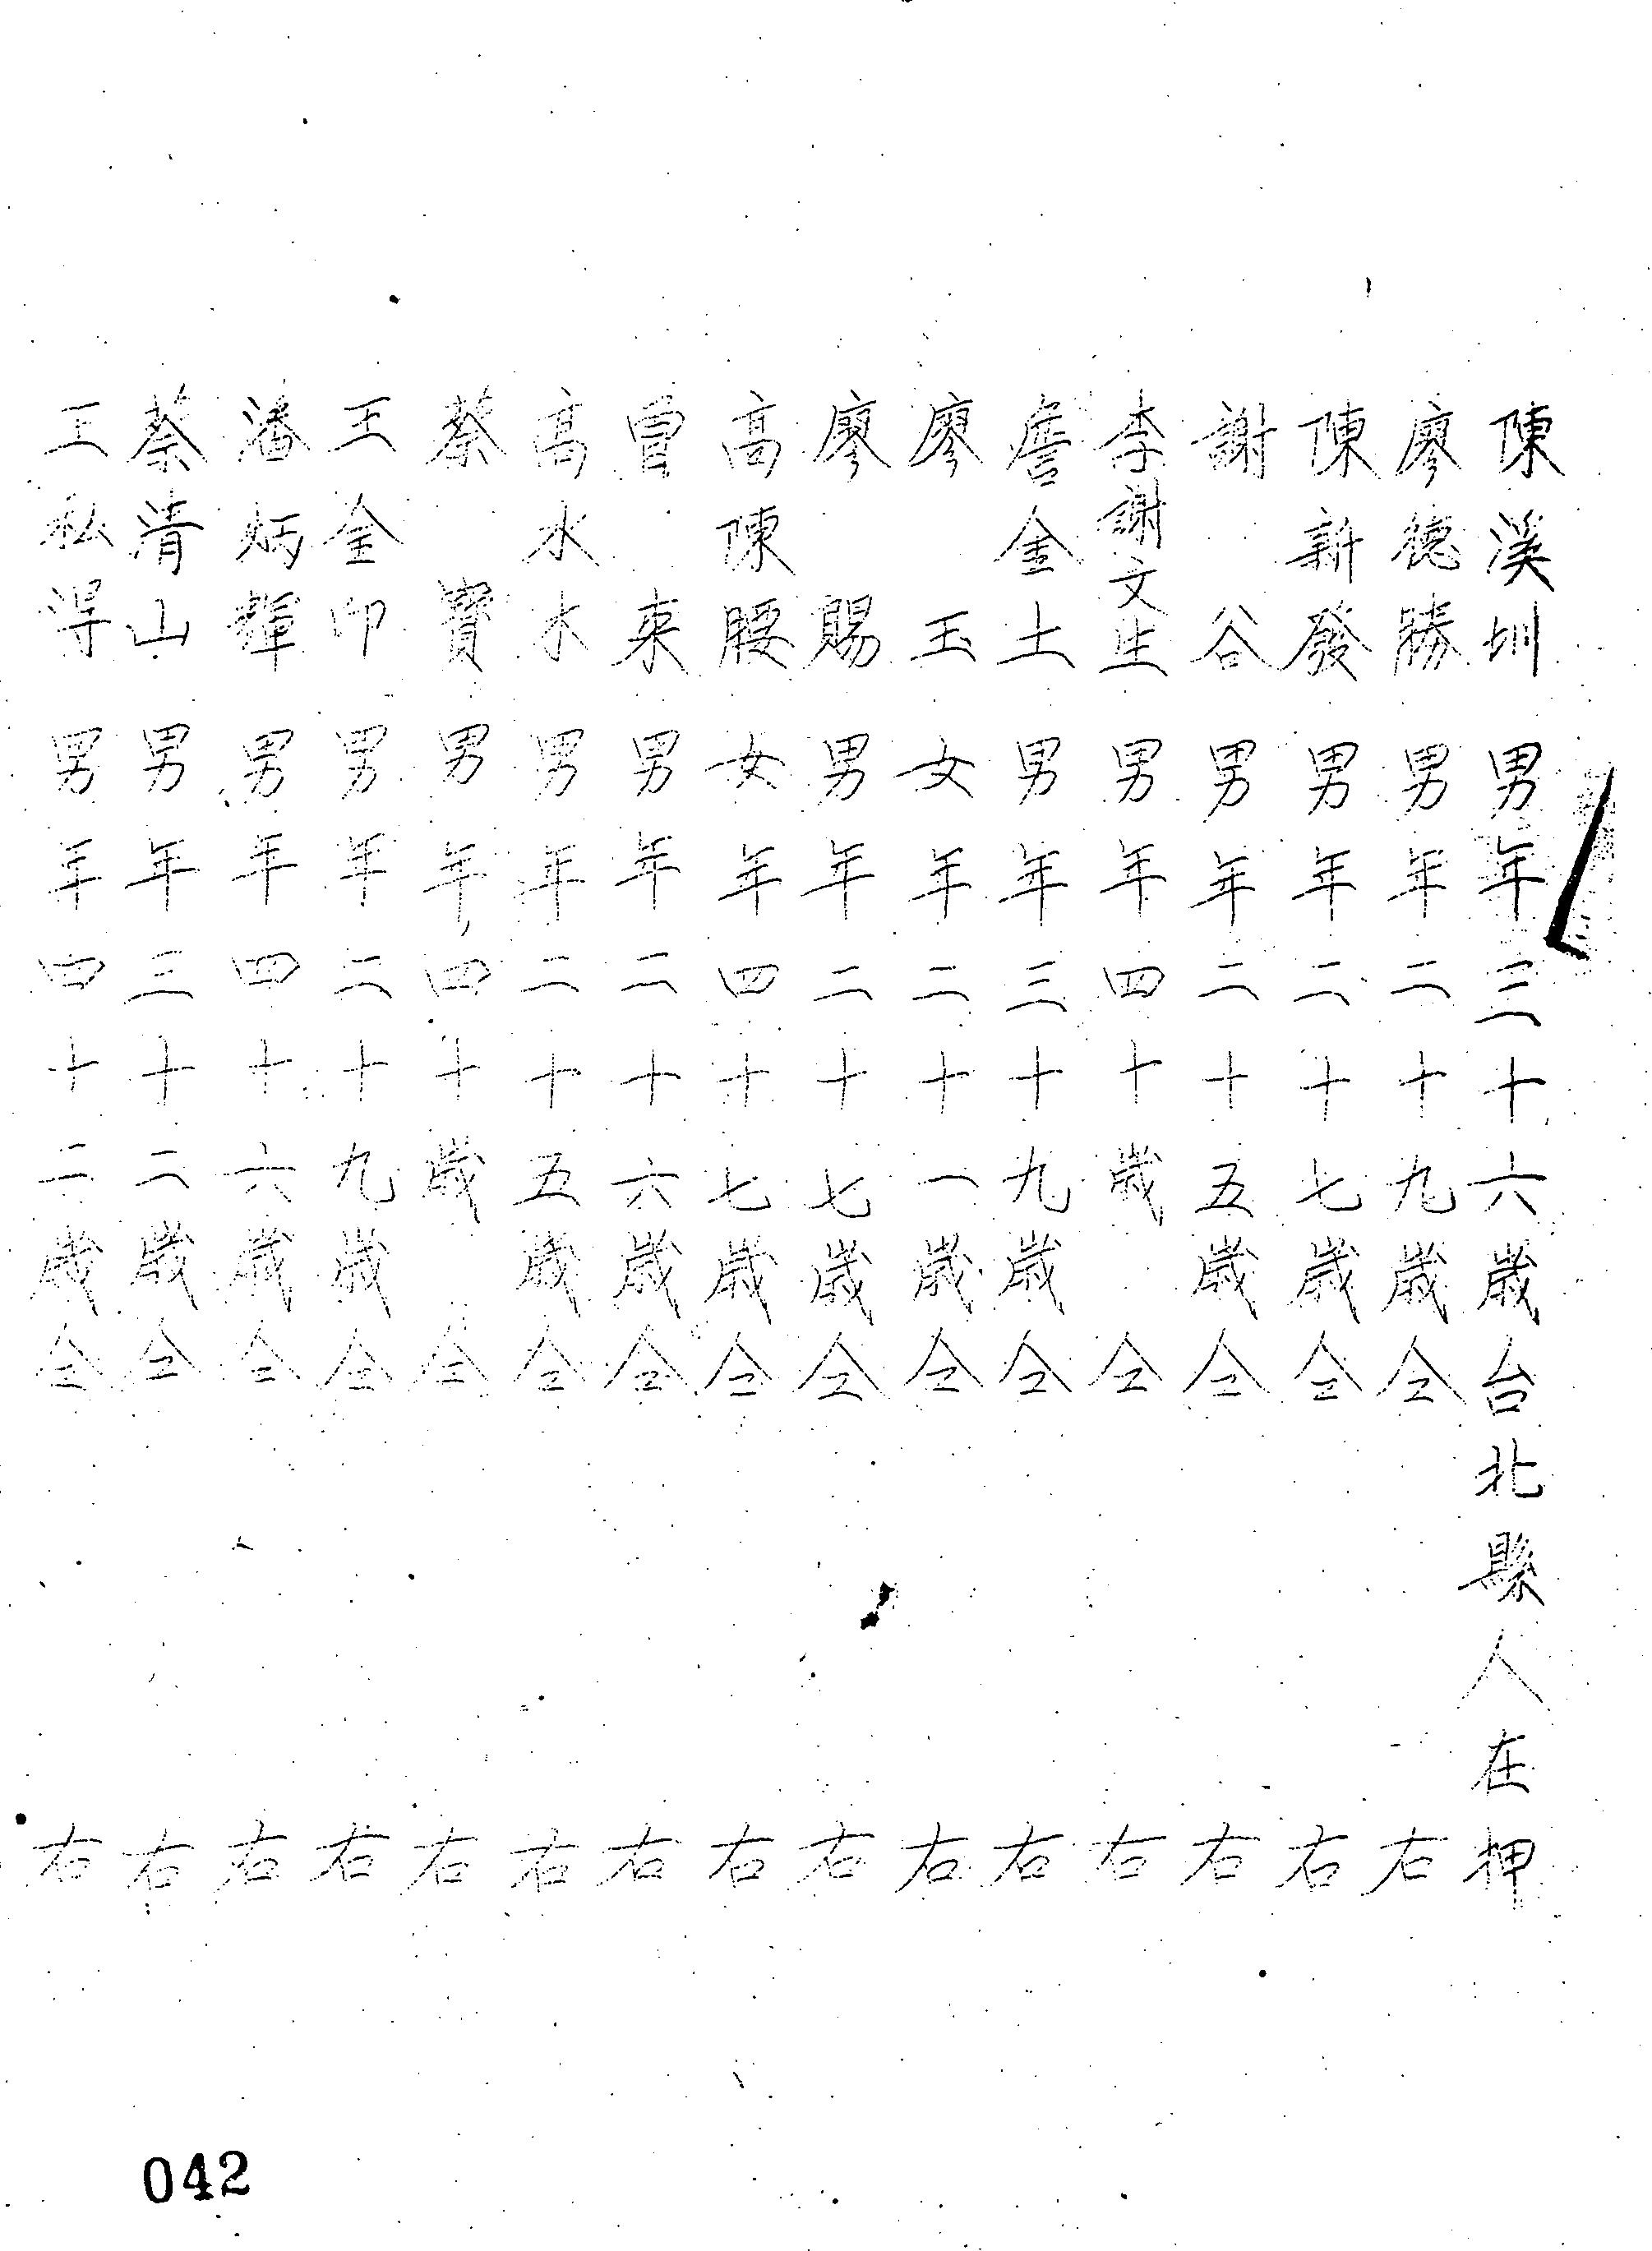 陳溪圳 男 年三十六歲 台北縣人 在押
廖德勝 男 年二十九歲 仝 右
陳新發 男 年二十七歲 仝 右
謝谷 男 年二十五歲 仝 右
李謝文生 男 年四十歲 仝 右
詹金土 男 年三十九歲 仝 右
廖玉 女 年二十一歲 仝 右
廖賜 男 年二十七歲 仝 右
高陳腰 女 年四十七歲 仝 右
曾來 男 年二十六歲 仝 右
高水木 男 年二十五歲 仝 右
蔡寶 男 年四十歲 仝 右
王金印 男 年二十九歲 仝 右
潘炳輝 男 年四十六歲 仝 右
蔡清山 男 年三十二歲 仝 右
王私得 男 年四十二歲 仝 右
042